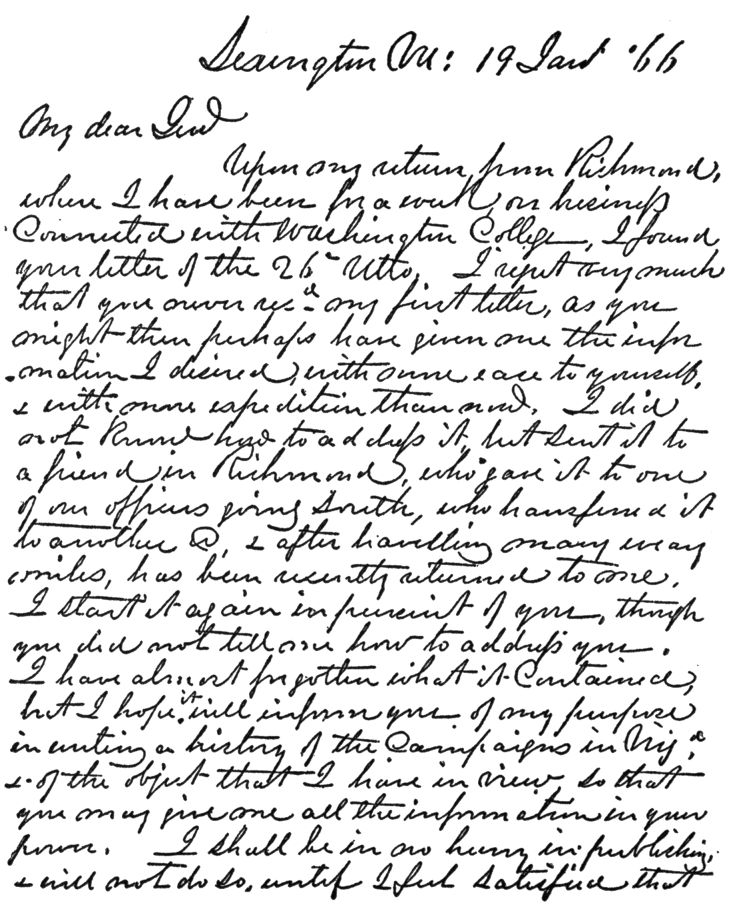 Lexington Va: 19 Jany '66
My dear Genl
Upon my return from Richmond,
where I have been for a week on business
Connected with Washington College, I found
your letter of the 26th Ulto. I regret very much
that you never recd my first letter, as you
might then perhaps have given me the infor
mation I desired, with more ease to yourself,
& with more expedition than now. I did
not Know how to address it, but sent it to
a friend in Richmond, who gave it to one
of our officers going South, who transferred it
to another &, & after travelling many weary
miles, has been recently returned to me.
I start it again in pursuit of you, though
you did not tell me how to address you.
I have almost forgotten what it Contained,
but I hope it will inform you of my purpose
in writing a history of the Campaigns in Virga
& of the object that I have in view, so that
you may give me all the information in your
power. I shall be in no hurry in publishing,
& will not do so, until I feel satisfied that